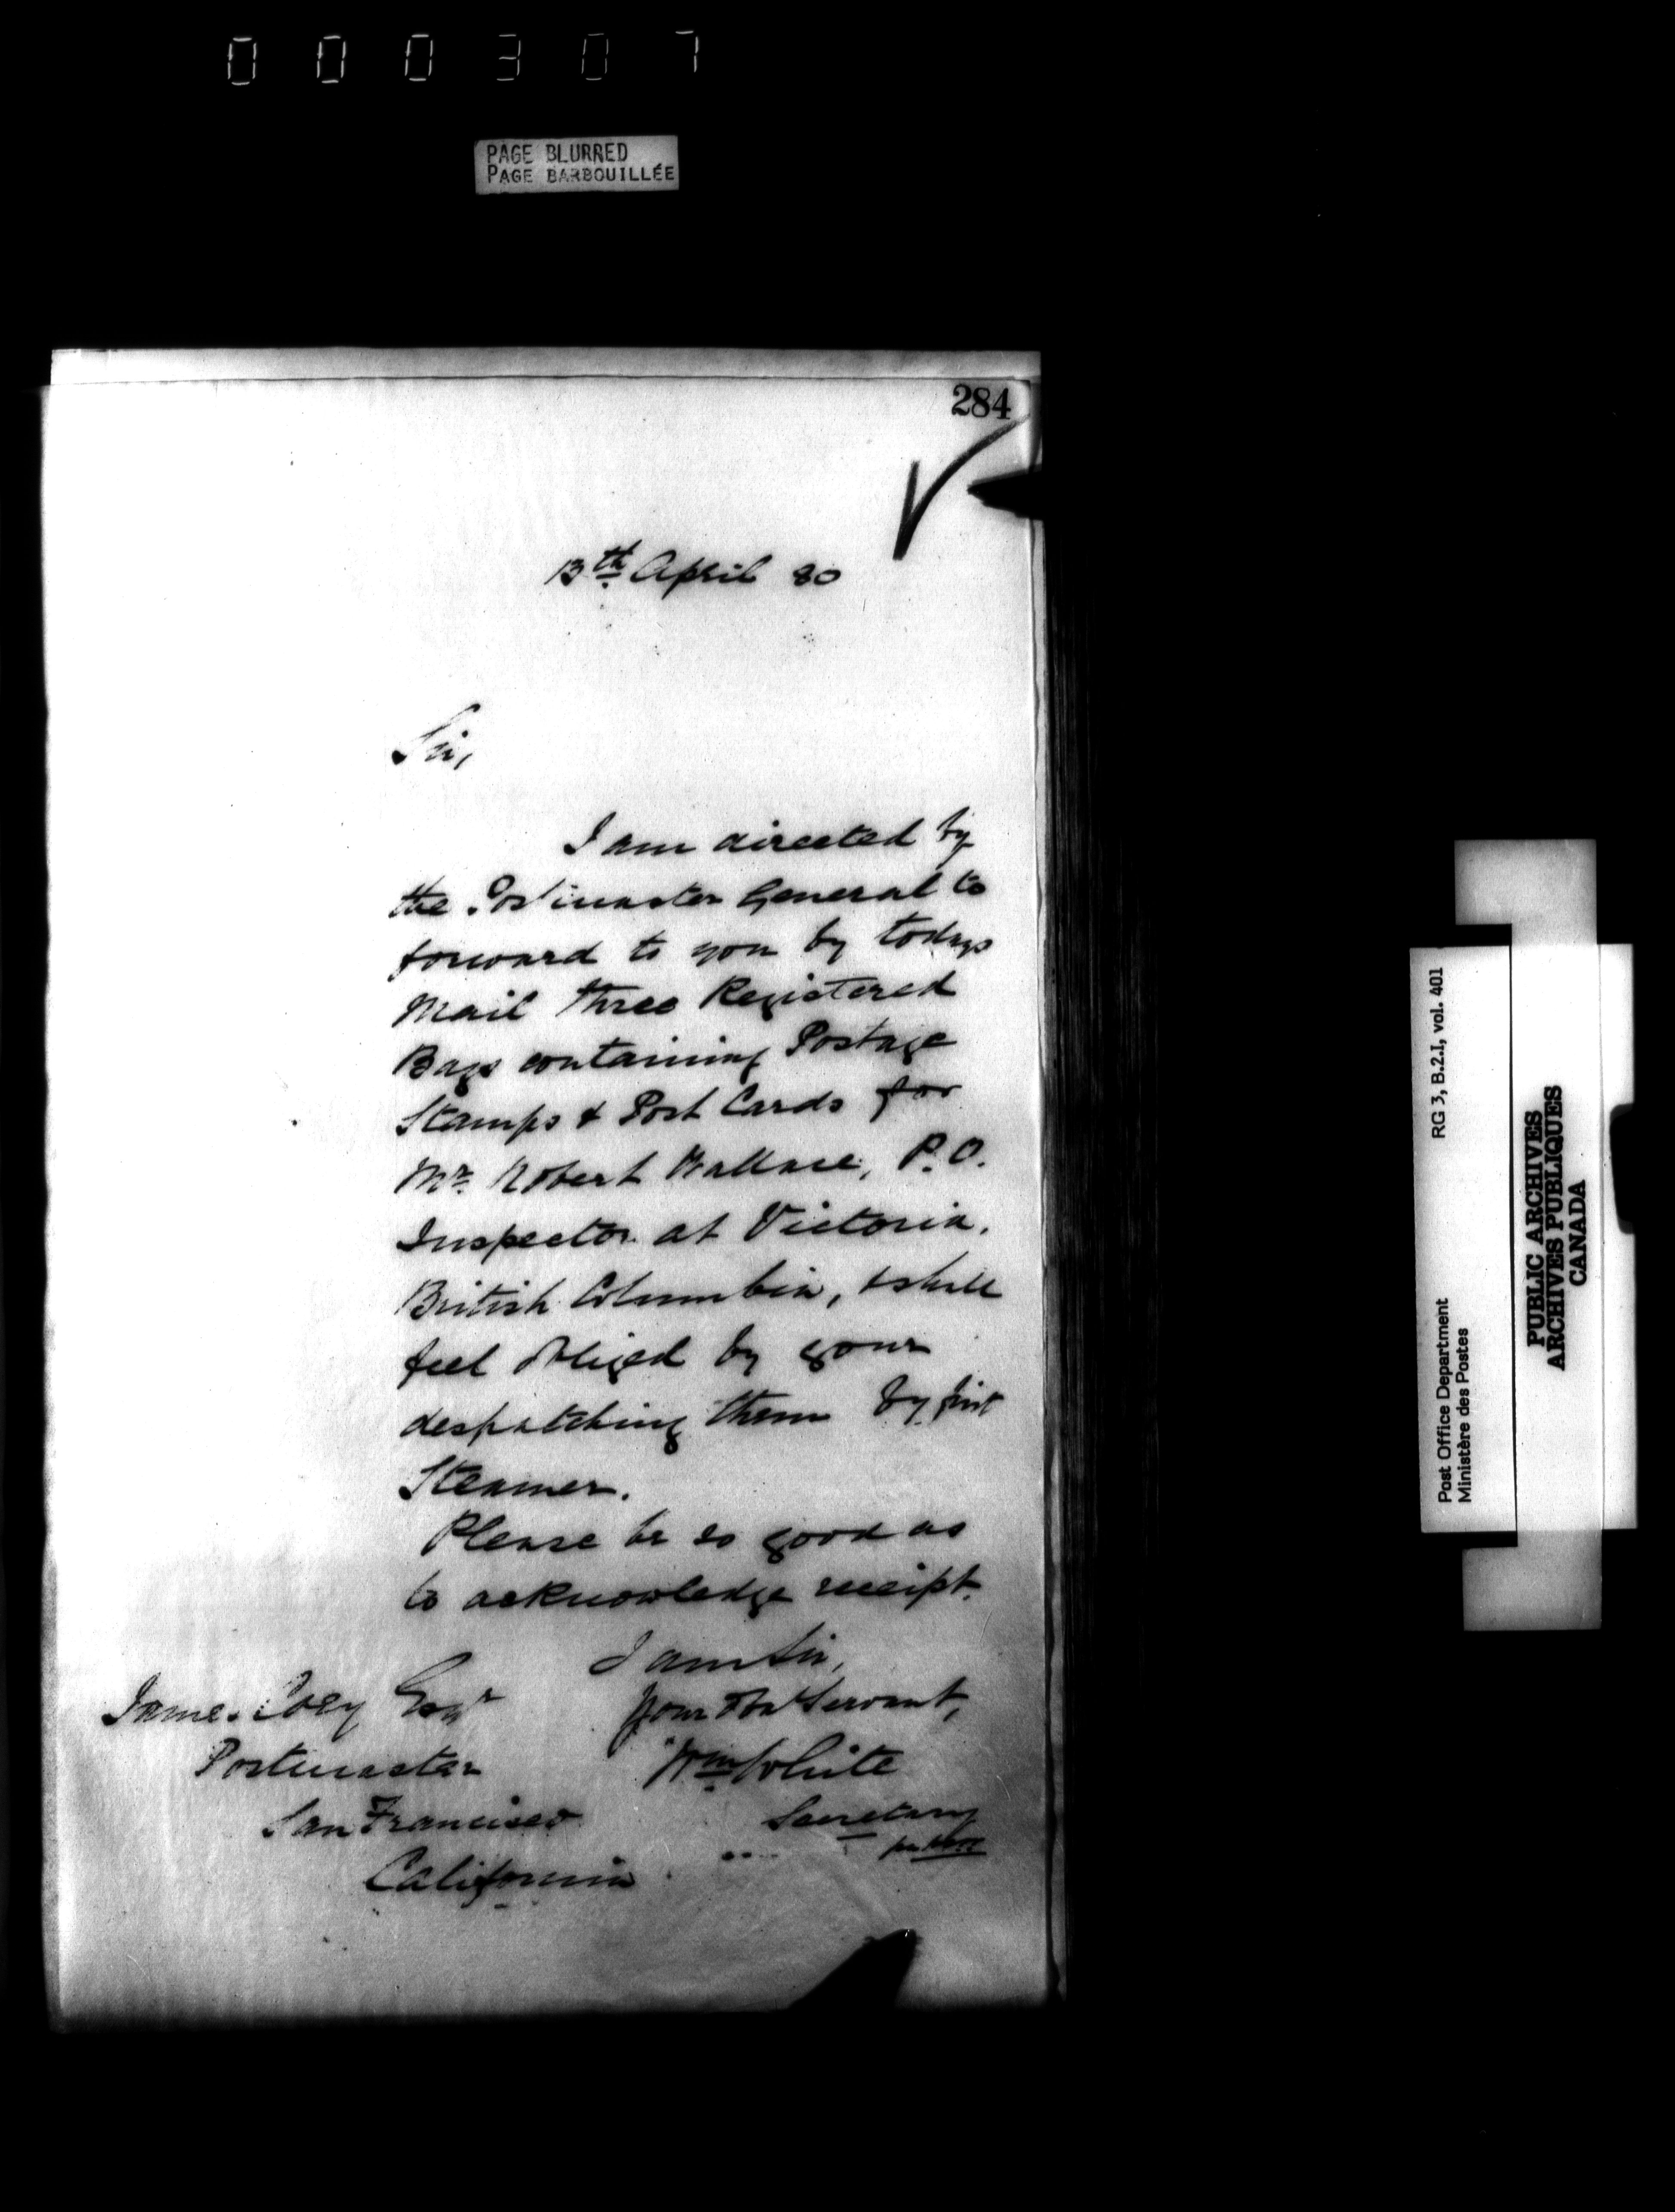 000307
PAGE BLURRED
PAGE BARBOUILLÉE
284
13th April 80
Sir,
I am directed by
the Postmaster General to
forward to you by todays
Mail three Registered
Bags containing Postage
Stamps & Post Cards for
Mr. Robert Wallace, P.O.
Inspector at Victoria,
British Columbia, & shall
feel obliged by your
despatching them by first
Steamer.
Please be so good as
to acknowledge receipt.
I am Sir,
Your Obt Servant,
Wm White
Secretary
James Coey Esqr
Postmaster
San Francisco
California
Post Office Department
Ministère des Postes
RG 3, B.2.I, vol. 401
PUBLIC ARCHIVES
ARCHIVES PUBLIQUES
CANADA